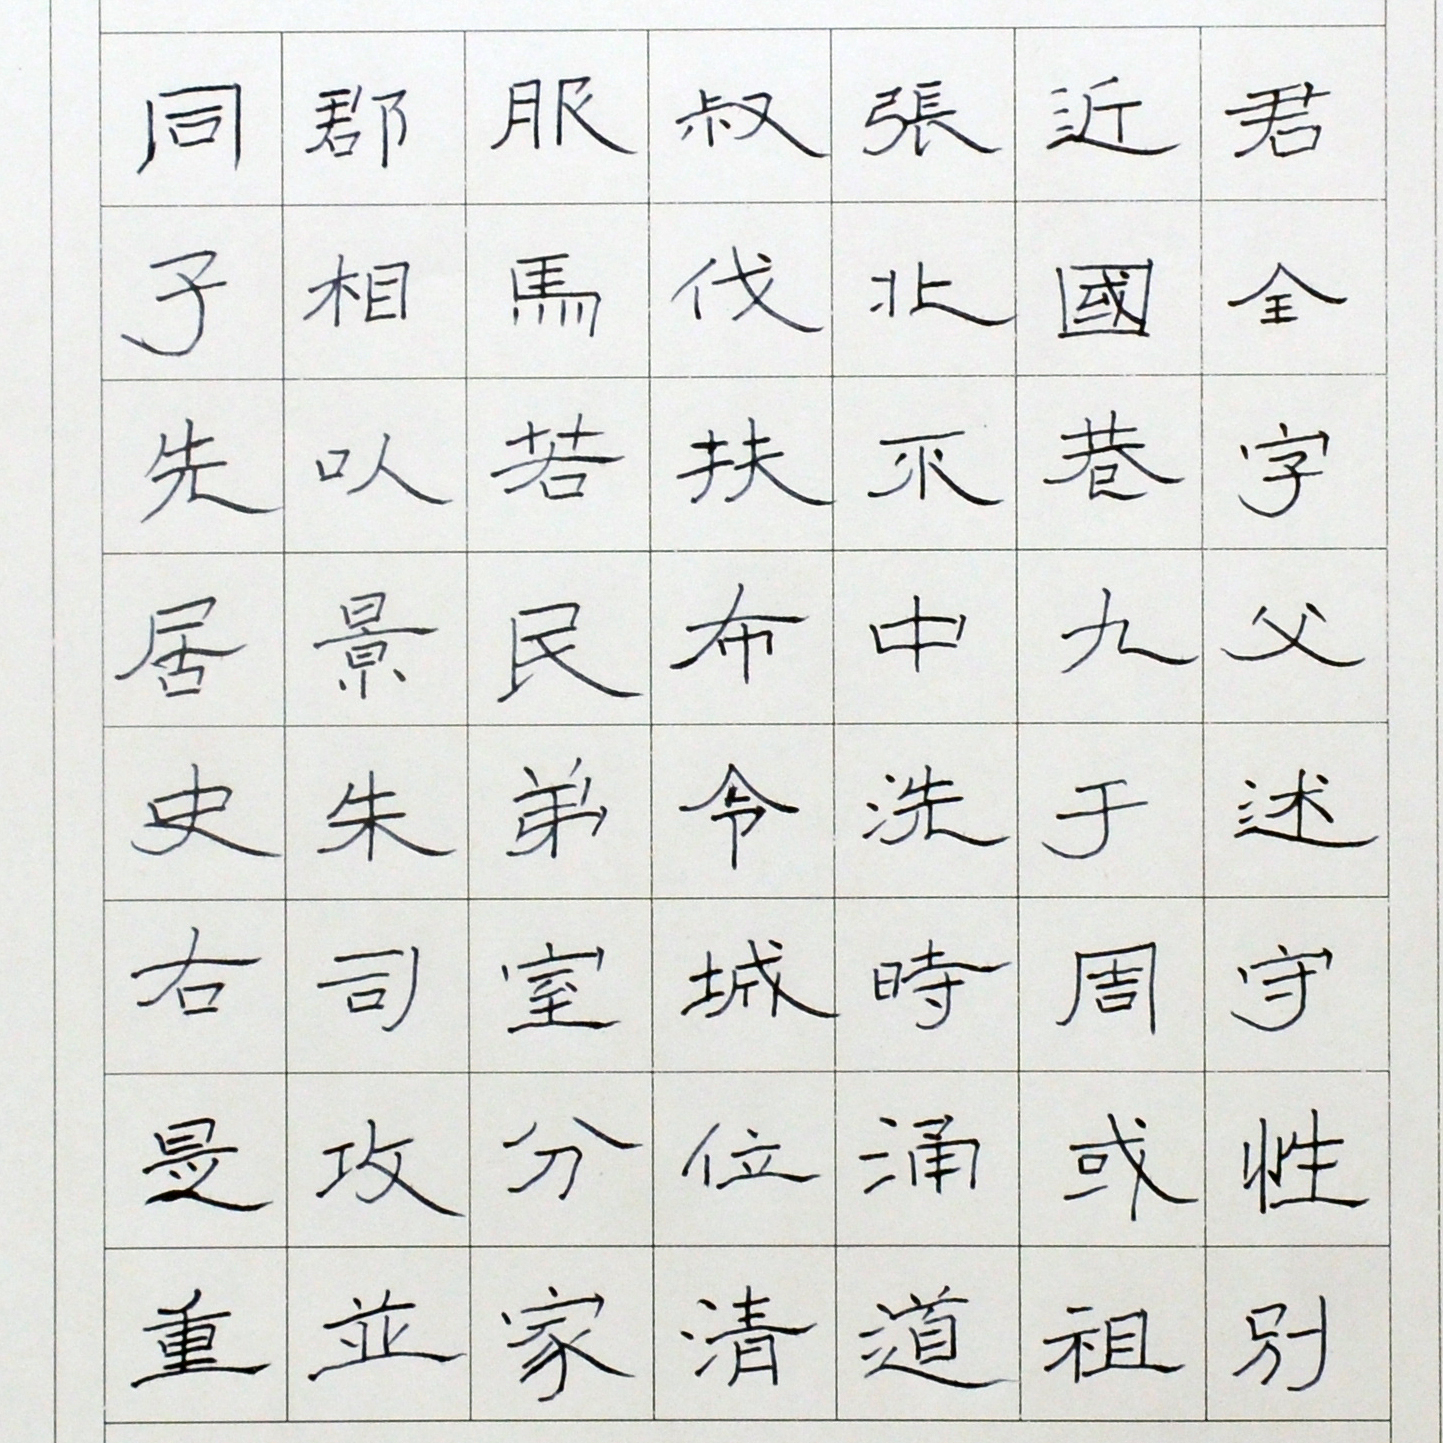 君全字父述守性別
近國巷九于周或祖
張北不中洗時涌道
叔伐扶布令城位清
服馬若民弟室分家
郡相以景朱司攻並
同子先居史右是重